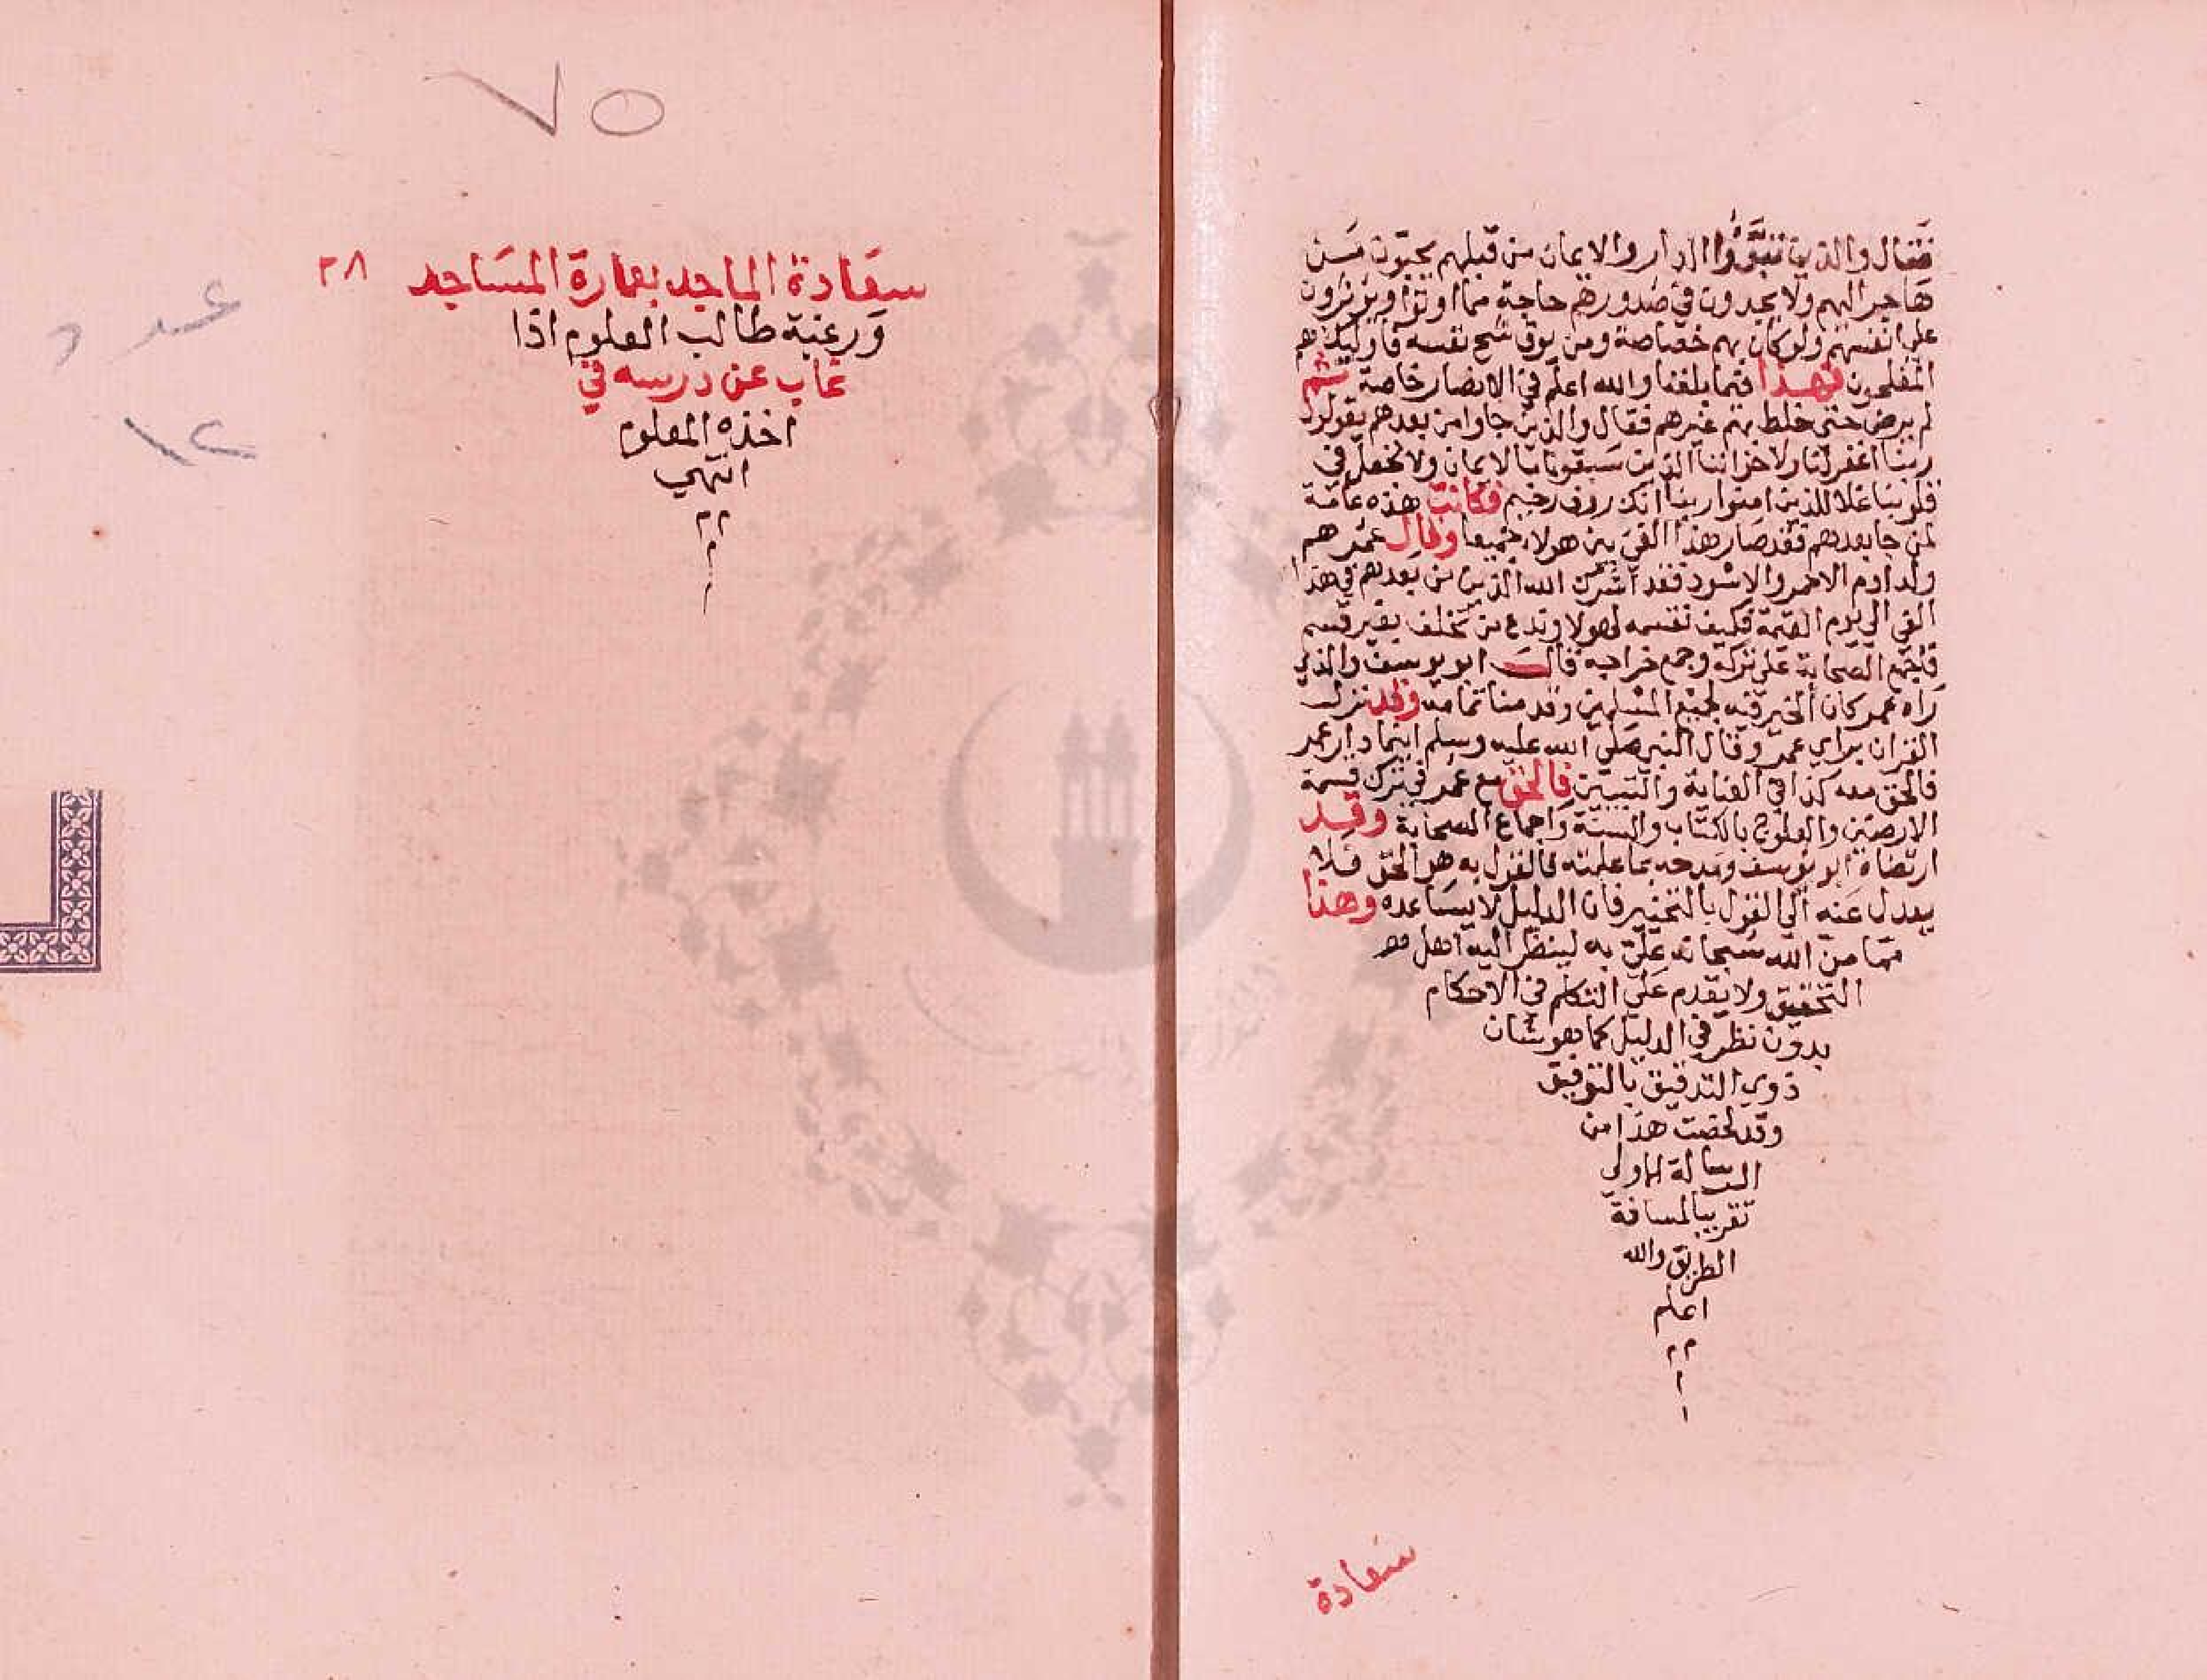 فقال والذين تبوؤا الدار والايمان من قبلهم يحبون من
هاجر اليهم ولا يجدون في صدورهم حاجة مما اوتوا ويؤثرون
على انفسهم ولو كان بهم خصاصة ومن يوق شح نفسه فاوليك هم
المفلحون فهذا فيما بلغنا والله اعلم في الانصار خاصة ثم
لم يرض حتى خلط بهم غيرهم فقال والذين جاوا من بعدهم يقولون
ربنا اغفر لنا ولاخواننا الذين سبقونا بالايمان ولا تجعل في
قلوبنا غلا للذين امنوا ربنا انك روف رحيم فكانت هذه عامة
لمن جا بعدهم فقد صار هذا الفي بين هولاء جميعا وقال عمر هم
ولد ادم الاحمر والاسود فقد اشرك الله الذين من بعدهم في هذا
الفي الى يوم القيمة فكيف نقسمه لهولا وندع من تخلف بغير قسم
فاجمع الصحابة على تركه وجمع خراجه قال ابو يوسف والذي
راه عمر كان الخير فيه لجميع المسلمين وقدمنا تمامه وقد نزل
القران براي عمر وقال النبي صلى الله عليه وسلم اينما دار عمر
فالحق معه كذا في العناية والتبيين فالحق مع عمر في ترك قسمة
الارضين والعلوج بالكتاب والسنة واجماع الصحابة وقد
ارتضاه ابو يوسف ومدحه بما علمته فالقول به هو الحق فلا
يعدل عنه الى القول بالتخيير فان الدليل لا يساعده وهذا
مما من الله سبحانه علي به لينظر اليه اهل
التحقيق ولا يقدم على التكلم في الاحكام
بدون نظر في الدليل كما هو شان
ذوي التدقيق بالتوفيق
وقد لخصت هذا من
الرسالة الاولى
تقريبا لمسافة
الطريق والله
اعلم
م م
ا
ا
سعادة
٧٥
سعادة الماجد بعمارة المساجد ٢٨
ورغبة طالب العلوم اذا
غاب عن درسه في
اخذه المعلوم
انتهى
م م
م
ا
عدد
١٢